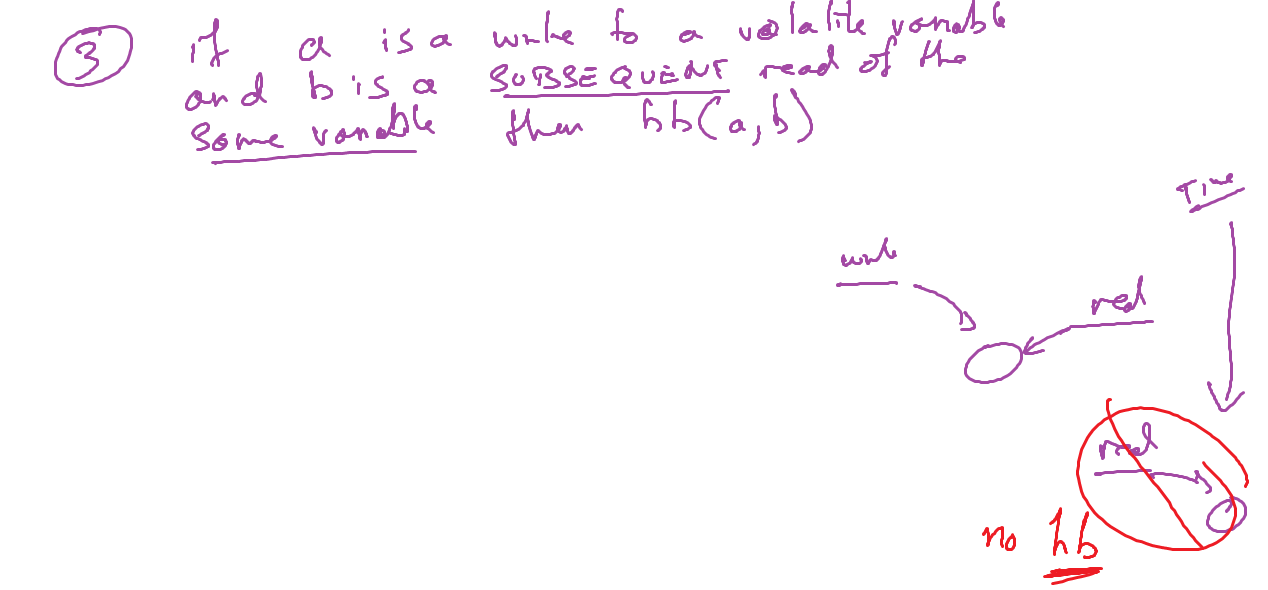 3 if a is a write to a volatile variable
and b is a SUBSEQUENT read of the
same variable then hb(a,b)
Time
write
read
read
no hb